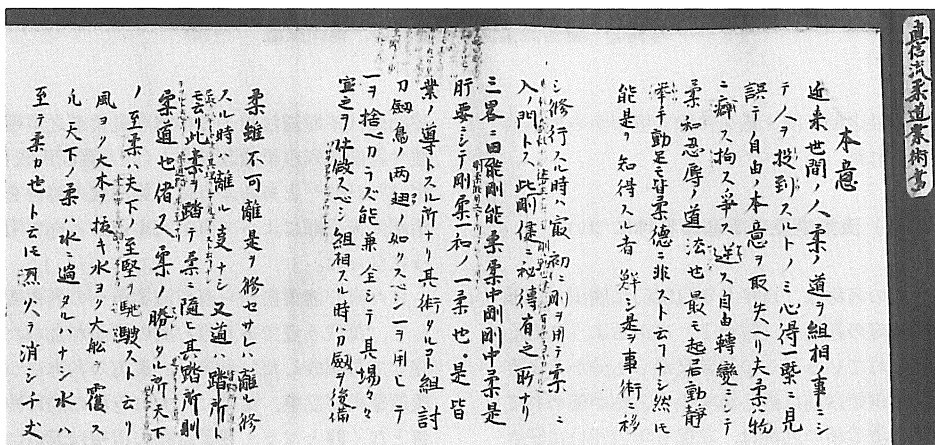 真信流柔道業術書
本意
近来世間ノ人柔ノ道ヲ組相ノ事ニシ
テ人ヲ投到スルトノミ心得一槩ニ見
誤ミ自由ノ本意ヲ取失ヘリ夫柔ハ物
ニ癖ス拘ス爭ス逆ス自由轉變ニシテ
柔ノ和忍辱ノ道法也最モ起居動静
挙手動足モ皆柔徳ニ非スト云フナシ然ㇾ圧
能是ヲ知得スル者鮮シ是ヲ事術ニ移
シ修行スル時ハ寂初ニ剛ヲ用テ柔ニ
入ノ門トス此剛健ニ秘傳有之所ナリ
三畧ニ曰能剛能柔柔中剛剛中柔是
肝要ニシテ剛柔一和ノ一柔也是皆
業ノ導トスル所ナリ其術タルヿ組討
刀劔鳥ノ両翅ノ如クスベシ一ヲ用ヒテ
一ヲ捨ベカラズ能兼全シテ其場々々
宜之ヲ作畧スベシ組相スル時ハ刀劔ヲ後備
柔雖不可離是ヲ修セサレハ離ル修
スル時ハ離ㇾ支ナシ又道ハ踏所ト
云此柔ヲ踏テ柔ニ随ヒ其踏所則
柔道也偖又柔ノ勝レタル所天下
ノ至柔ハ天下ノ至堅ヲ馳騁スト云リ
風ヨク大木ヲ抜キ水ヨク大舩ヲ覆ス
凡天下ノ柔ハ水ニ過タルハナシ水ハ
至テ柔カ也ト云ㇾ圧烈火ヲ消シ千丈